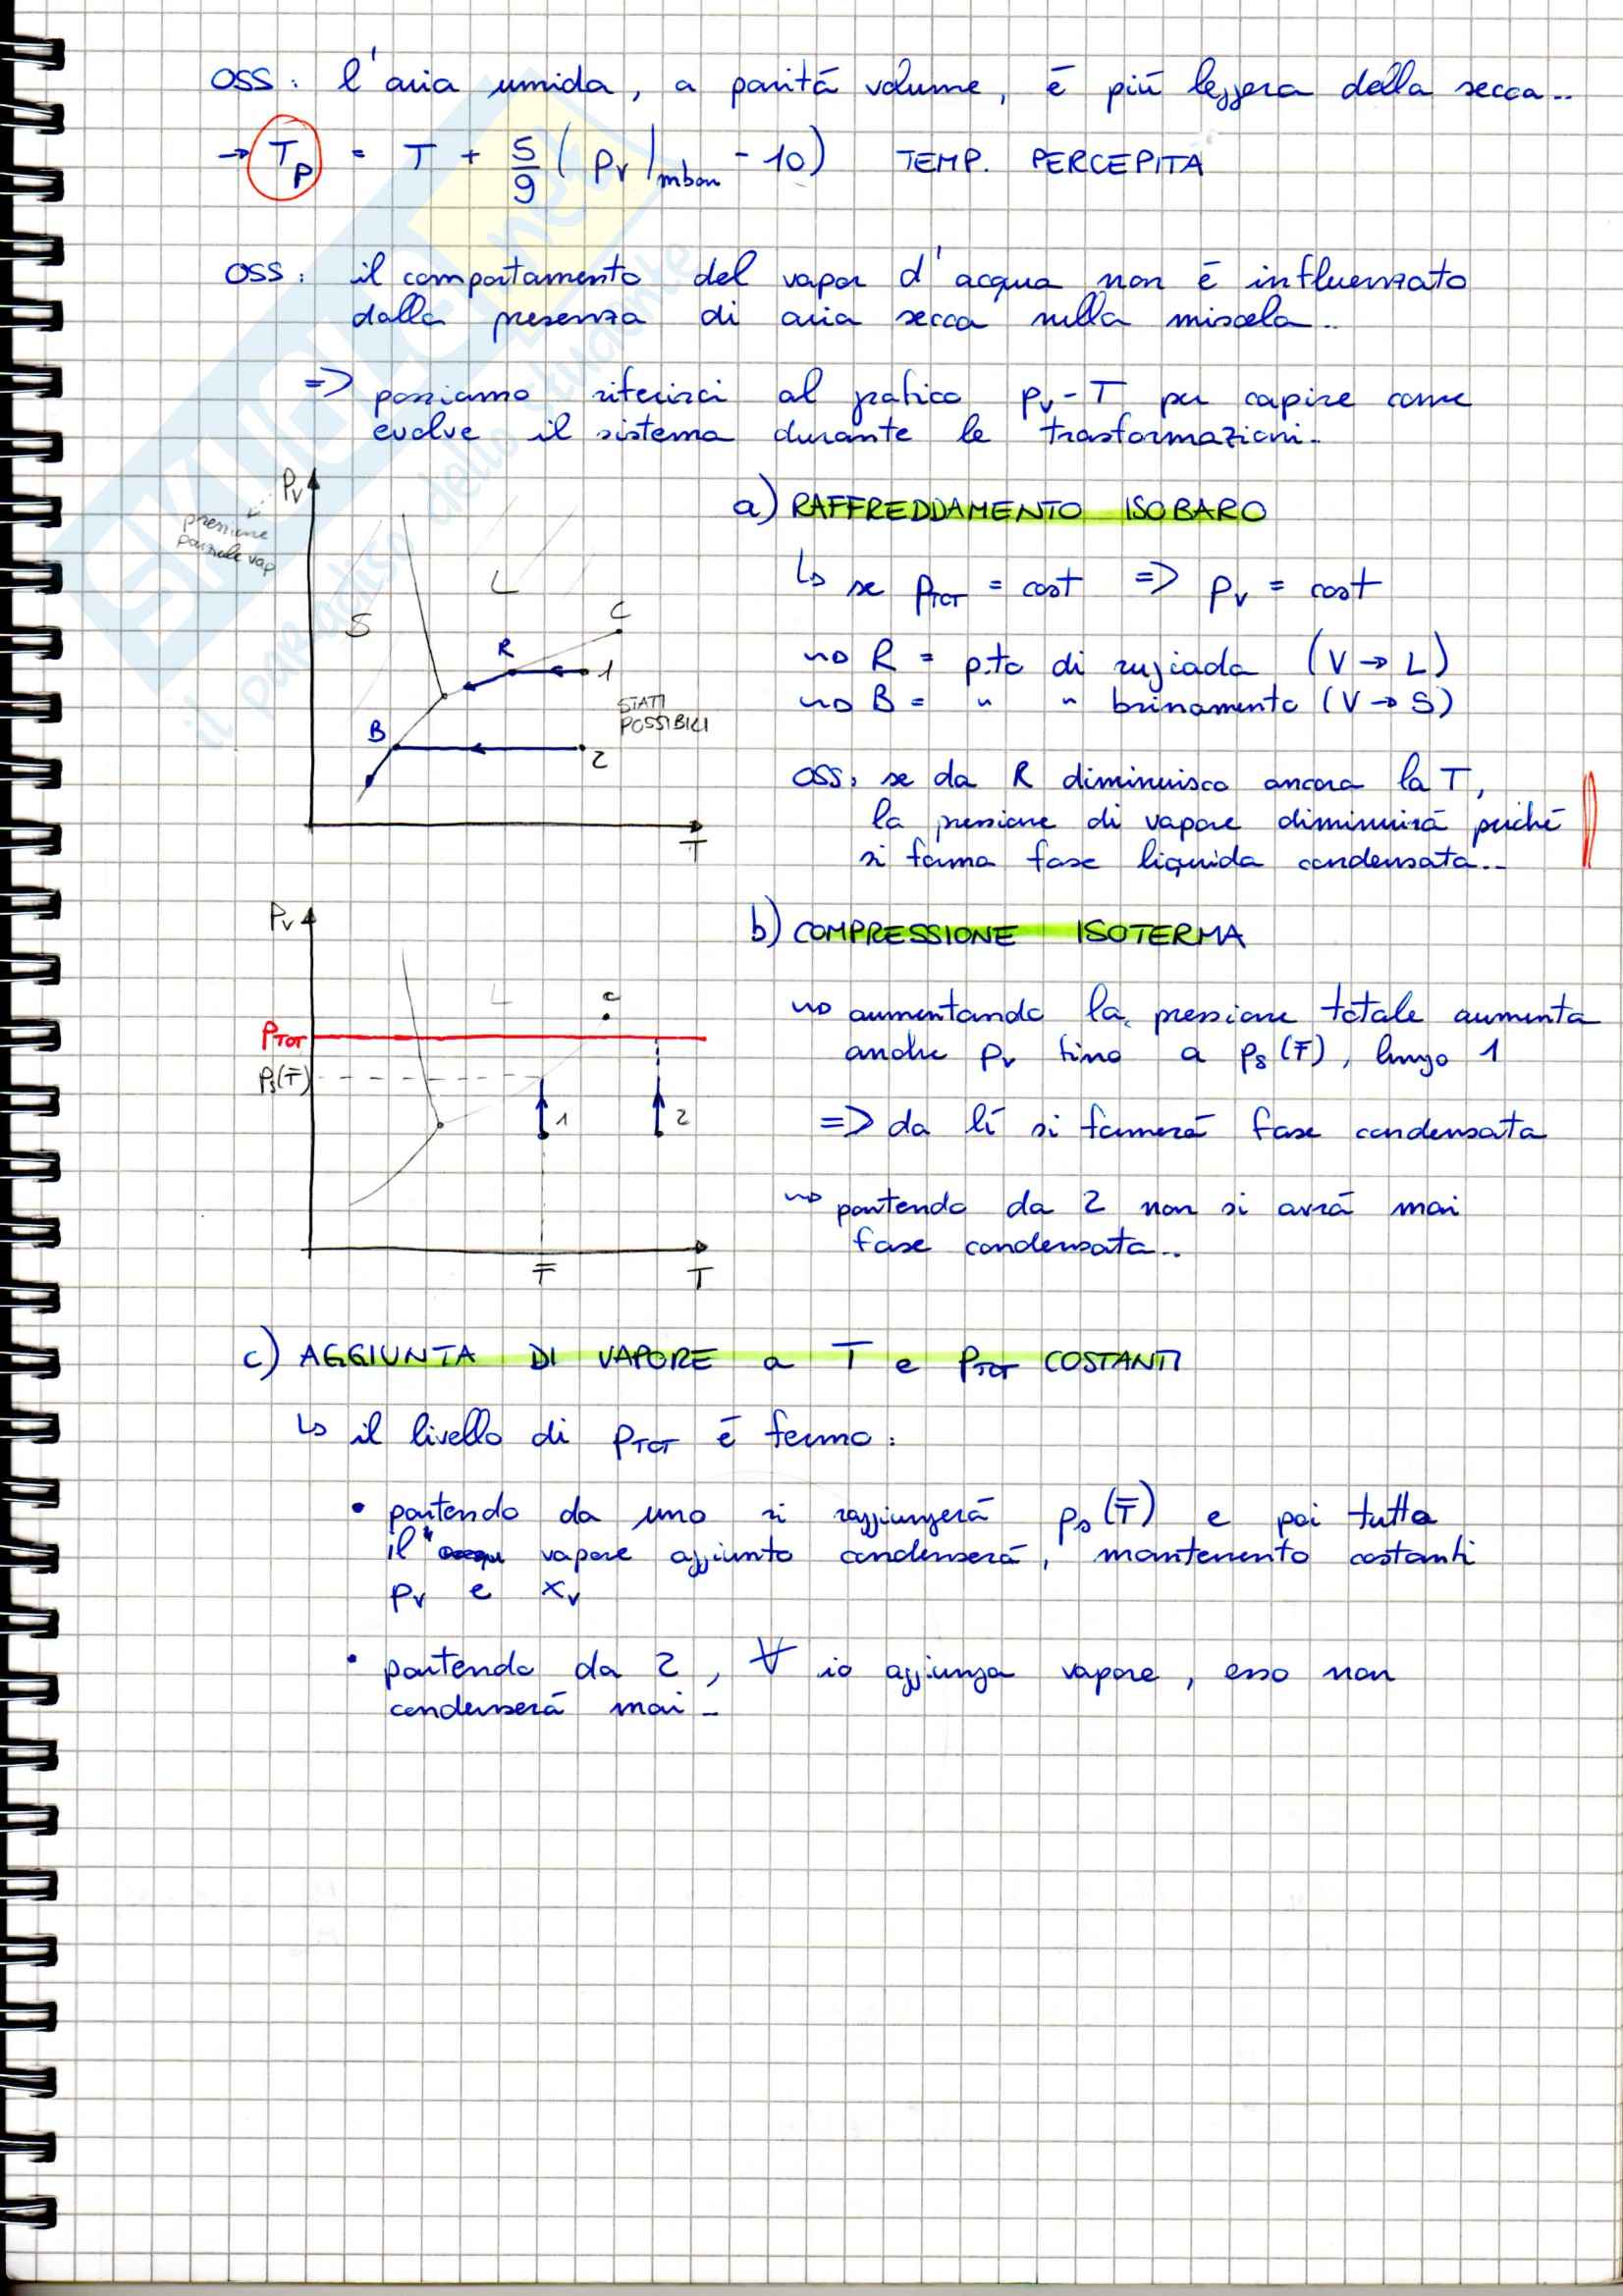 OSS: l'aria umida, a parità volume, è più leggera della secca..
→ Tp = T + 5/9 ( pv|mbar - 10) TEMP. PERCEPITA
OSS: il comportamento del vapor d'acqua non è influenzato
dalla presenza di aria secca nella miscela..
=> possiamo riferirci al grafico pv-T per capire come
evolve il sistema durante le trasformazioni.
Pv
pressione
parziale vap
S
L
C
R
1
STATI
POSSIBILI
B
2
T
a) RAFFREDDAMENTO ISOBARO
↳ se pTOT = cost => pv = cost
⇝ R = p.to di rugiada (V → L)
⇝ B = " " brinamento (V → S)
OSS: se da R diminuisco ancora la T,
la pressione di vapore diminuirà perché
si forma fase liquida condensata..
Pv
L
c
PTOT
Ps(T̄)
1
2
T̄
T
b) COMPRESSIONE ISOTERMA
⇝ aumentando la pressione totale aumenta
anche pv fino a ps(T̄), lungo 1
=> da lì si formerà fase condensata
⇝ partendo da 2 non si avrà mai
fase condensata..
c) AGGIUNTA DI VAPORE a T e PTOT COSTANTI
↳ il livello di pTOT è fermo:
• partendo da uno si raggiungerà ps(T̄) e poi tutto
il vapore aggiunto condenserà, mantenento costanti
pv e xv
• partendo da 2, ∀ io aggiunga vapore, esso non
condenserà mai.
SKUOLA.net
il paradiso dello studente